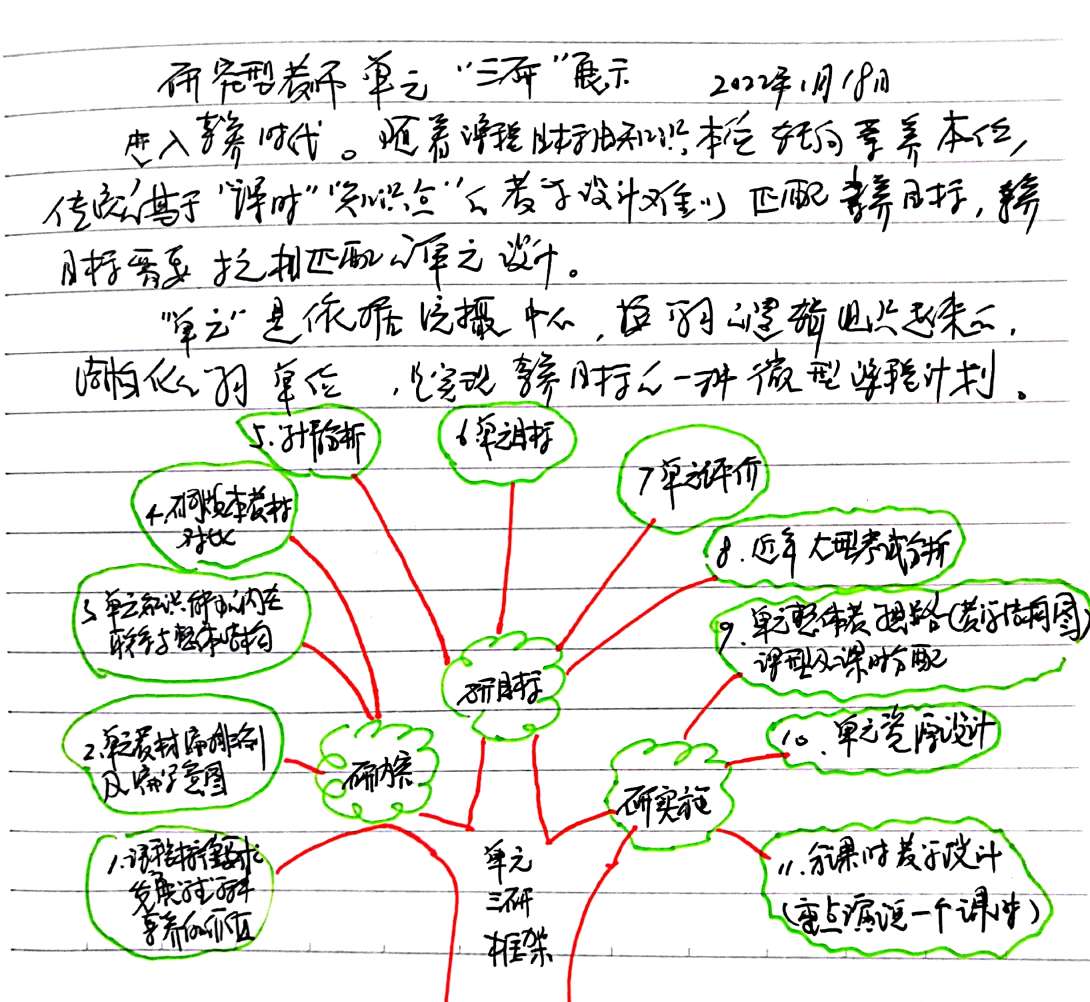 研究型教师单元“三研”展示 2022年1月18日
进入素养时代。随着课程目标由知识本位转向素养本位,
传统的基于“课时”“知识点”的教学设计难以匹配素养目标,素养
目标需要与之相匹配的单元设计。
“单元”是依据统摄中心,按学习的逻辑组织起来的,
结构化的学习单位,是实现素养目标的一种微型课程计划。
5.学情分析
6.单元目标
7 单元评价
4.不同版本教材
对比
8.近年大型考试分析
3.单元知识解构、内在
联系与整体结构
9.单元整体教学思路(教学结构图)
课型及课时分配
研目标
2.单元教材编排体例
及编写意图
研内容
10.单元资源设计
研实施
1.课程标准要求
发展学生学科
素养的价值
11.分课时教学设计
(重点演说一个课时)
单元
三研
框架